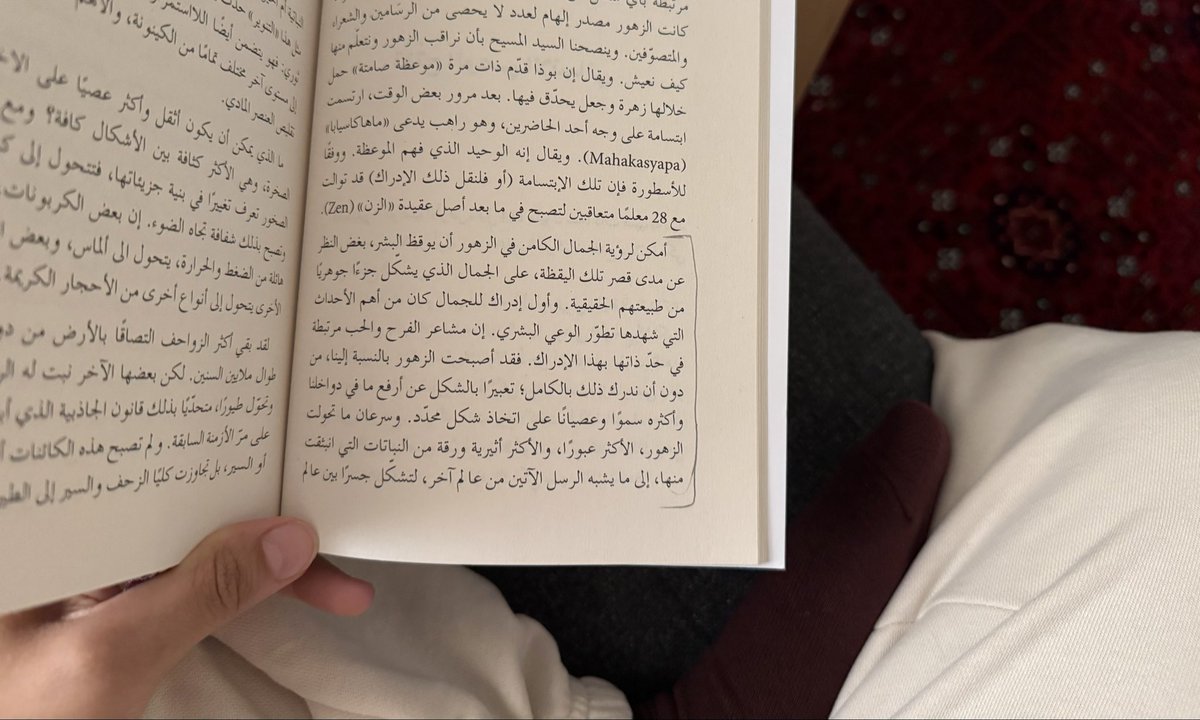 مرتبطة بأي
كانت الزهور مصدر إلهام لعدد لا يحصى من الرسّامين والشعراء
والمتصوّفين. وينصحنا السيد المسيح بأن نراقب الزهور ونتعلّم منها
كيف نعيش. ويقال إن بوذا قدّم ذات مرة «موعظة صامتة» حمل
خلالها زهرة وجعل يحدّق فيها. بعد مرور بعض الوقت، ارتسمت
ابتسامة على وجه أحد الحاضرين، وهو راهب يدعى «ماهاكاسيابا»
(Mahakasyapa). ويقال إنه الوحيد الذي فهم الموعظة. ووفقًا
للأسطورة فإن تلك الإبتسامة (أو فلنقل ذلك الإدراك) قد توالت
مع 28 معلمًا متعاقبين لتصبح في ما بعد أصل عقيدة «الزن» (Zen).
أمكن لرؤية الجمال الكامن في الزهور أن يوقظ البشر، بغض النظر
عن مدى قصر تلك اليقظة، على الجمال الذي يشكّل جزءًا جوهريًا
من طبيعتهم الحقيقية. وأول إدراك للجمال كان من أهم الأحداث
التي شهدها تطوّر الوعي البشري. إن مشاعر الفرح والحب مرتبطة
في حدّ ذاتها بهذا الإدراك. فقد أصبحت الزهور بالنسبة إلينا، من
دون أن ندرك ذلك بالكامل؛ تعبيرًا بالشكل عن أرفع ما في دواخلنا
وأكثره سموًا وعصيانًا على اتخاذ شكل محدّد. وسرعان ما تحولت
الزهور، الأكثر عبورًا، والأكثر أثيرية ورقة من النباتات التي انبثقت
منها، إلى ما يشبه الرسل الآتين من عالم آخر، لتشكل جسرًا بين عالم
مثل هذا «التنوير»
ثوري: فهو يتضمن أيضًا اللااستمرار
إلى مستوى آخر مختلف تمامًا من الكينونة، والأهم
تقليص العنصر المادي.
ما الذي يمكن أن يكون أثقل وأكثر عصيًا على
الصخرة، وهي الأكثر كثافة بين الأشكال كافة؟ ومع
الصخور تعرف تغييرًا في بنية جزيئاتها، فتتحول إلى
وتصبح بذلك شفافة تجاه الضوء. إن بعض الكربونات،
هائلة من الضغط والحرارة، يتحول الى ألماس، وبعض
الأخرى يتحول إلى أنواع أخرى من الأحجار الكريمة
لقد بقي أكثر الزواحف التصاقًا بالأرض من
طوال ملايين السنين. لكن بعضها الآخر نبت له
وتحوّل طيورًا، متحدّيًا بذلك قانون الجاذبية الذي
على مرّ الأزمنة السابقة. ولم تصبح هذه الكائنات
أو السير، بل تجاوزت كليًا الزحف والسير إلى